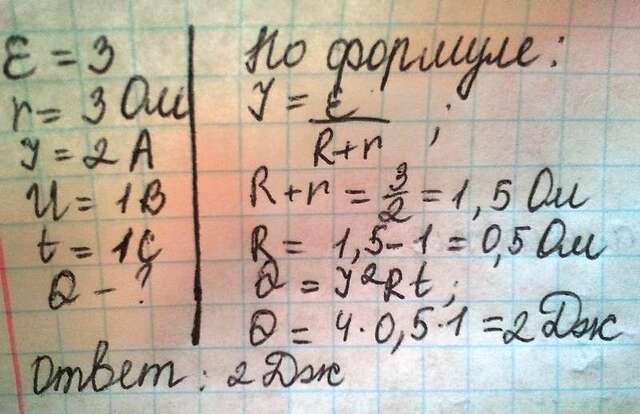 ε = 3
r = 3 Ом
У = 2 А
U = 1В
t = 1С
Q - ?
По формуле:
У = ε / R+r ;
R+r = 3/2 = 1,5 Ом
R = 1,5-1 = 0,5 Ом
Q = У²Rt;
Q = 4·0,5·1 = 2 Дж
Ответ: 2 Дж